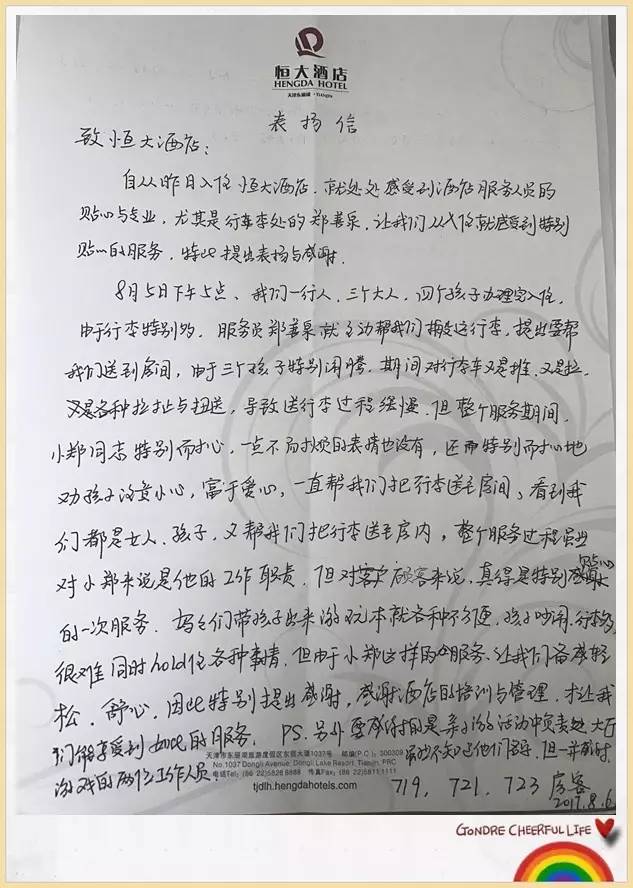 恒大酒店
HENGDA HOTEL
天津东丽湖·TianJin
表扬信
致恒大酒店：
自从昨日入住恒大酒店，就处处感受到酒店服务人员的
贴心与专业，尤其是行李处的郑善泉，让我们从入住就感受到特别
贴心的服务，特此提出表扬与感谢。
8月5日下午5点、我们一行人，三个大人，四个孩子办理完入住，
由于行李特别多，服务员郑善泉就主动帮我们搬运行李，提出要帮
我们送到房间，由于三个孩子特别闹腾，期间对行李车又是推，又是拉，
又是各种拉扯与扭送，导致送行李过程缓慢，但整个服务期间，
小郑同志特别耐心，一点不耐烦的表情也没有，还而特别耐心地
劝孩子注意小心，富于爱心，一直帮我们把行李送至房间，看到我
们都是女人、孩子，又帮我们把行李送至房内，整个服务过程虽然
对小郑来说是他的工作职责，但对顾客来说，真得是特别贴心
的一次服务。妈妈们带孩子出来游玩本就各种不便，孩子吵闹，行李多，
很难同时hold住各种事情，但由于小郑这样的服务，让我们备感轻
松，舒心，因此特别提出感谢，感谢酒店的培训与管理，才让我
们能享受到如此的服务。 PS.另外要感谢的是亲子游活动中负责处大厅
游戏的两位工作人员，虽然不知道他们名字，但一并感谢。
天津市东丽湖旅游度假区东丽大道1037号 邮编(P.C.): 300309
No.1037 Dongli Avenue, Dongli Lake Resort, Tianjin, PRC
电话Tel: (86 22)5828 8888 传真Fax: (86 22)5811 1111
tjdlh.hengdahotels.com
719, 721, 723 房客
2017.8.6
GONDRE CHEERFUL LIFE